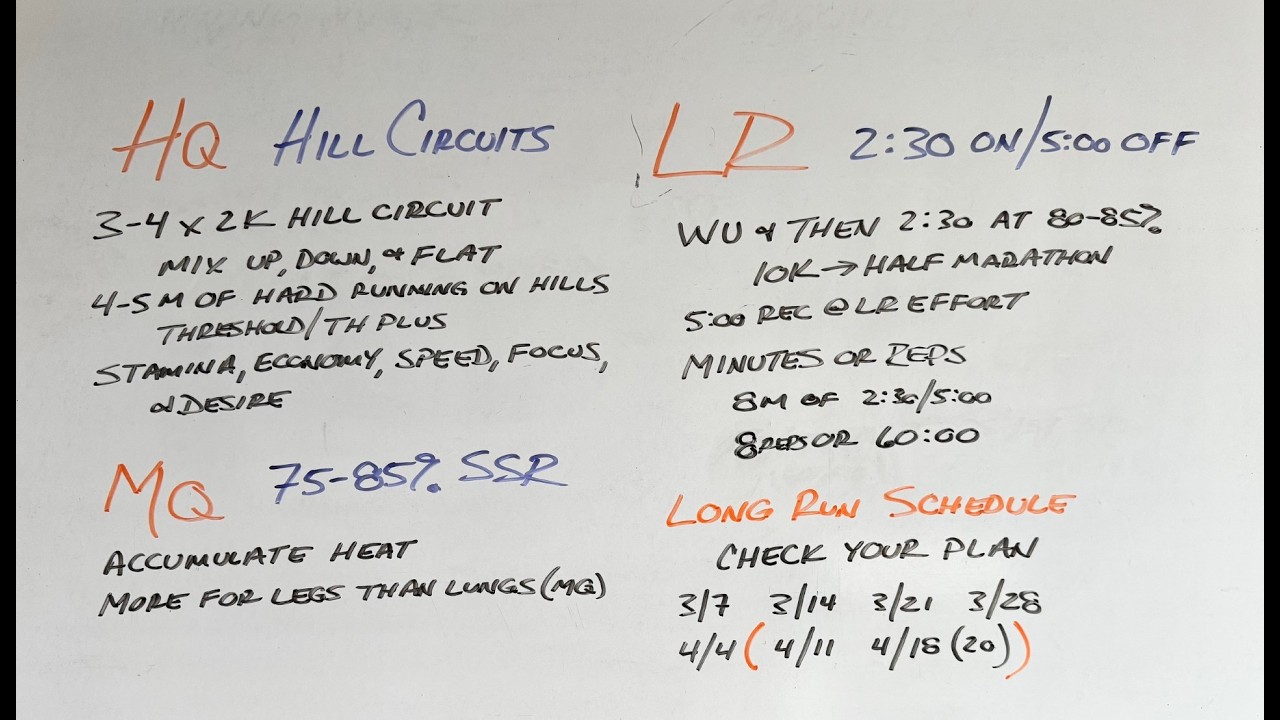 HQ HILL CIRCUITS
3-4 x 2K HILL CIRCUIT
MIX UP, DOWN, & FLAT
4-5 M OF HARD RUNNING ON HILLS
THRESHOLD/TH PLUS
STAMINA, ECONOMY, SPEED, FOCUS,
& DESIRE
MQ 75-85% SSR
ACCUMULATE HEAT
MORE FOR LEGS THAN LUNGS (MQ)
LR 2:30 ON/5:00 OFF
WU & THEN 2:30 AT 80-85%
10K → HALF MARATHON
5:00 REC @ LR EFFORT
MINUTES OR REPS
8M OF 2:30/5:00
8 REPS OR 60:00
LONG RUN SCHEDULE
CHECK YOUR PLAN
3/7 3/14 3/21 3/28
4/4 (4/11 4/18 (20))